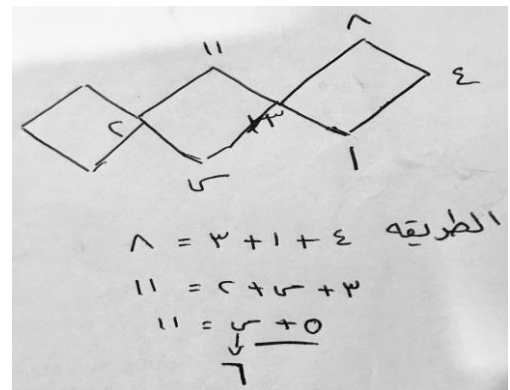 ٨
١١
٤
٢
٣
١
س
الطريقه ٤ + ١ + ٣ = ٨
٣ + س + ٢ = ١١
٥ + س = ١١
٦